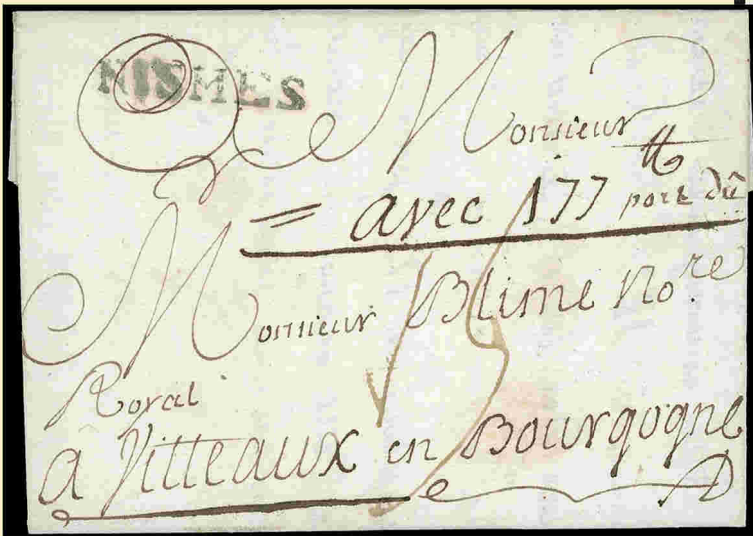 NISMES
Monsieur
= avec 177 ₶ port dû
Monsieur Blime No.re
Royal
a Vitteaux en Bourgogne
15